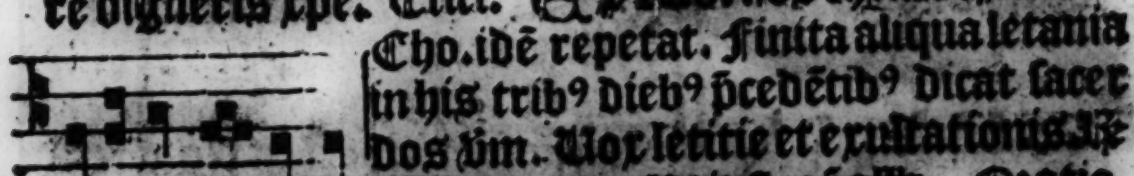 re digneris xpe.
Cho. idē repetat. Finita aliqua letania
in his tribꝰ diebꝰ p̄cedētibꝰ dicat sacer
dos v̄m. Uox letitie et exultationis. Iꝶ